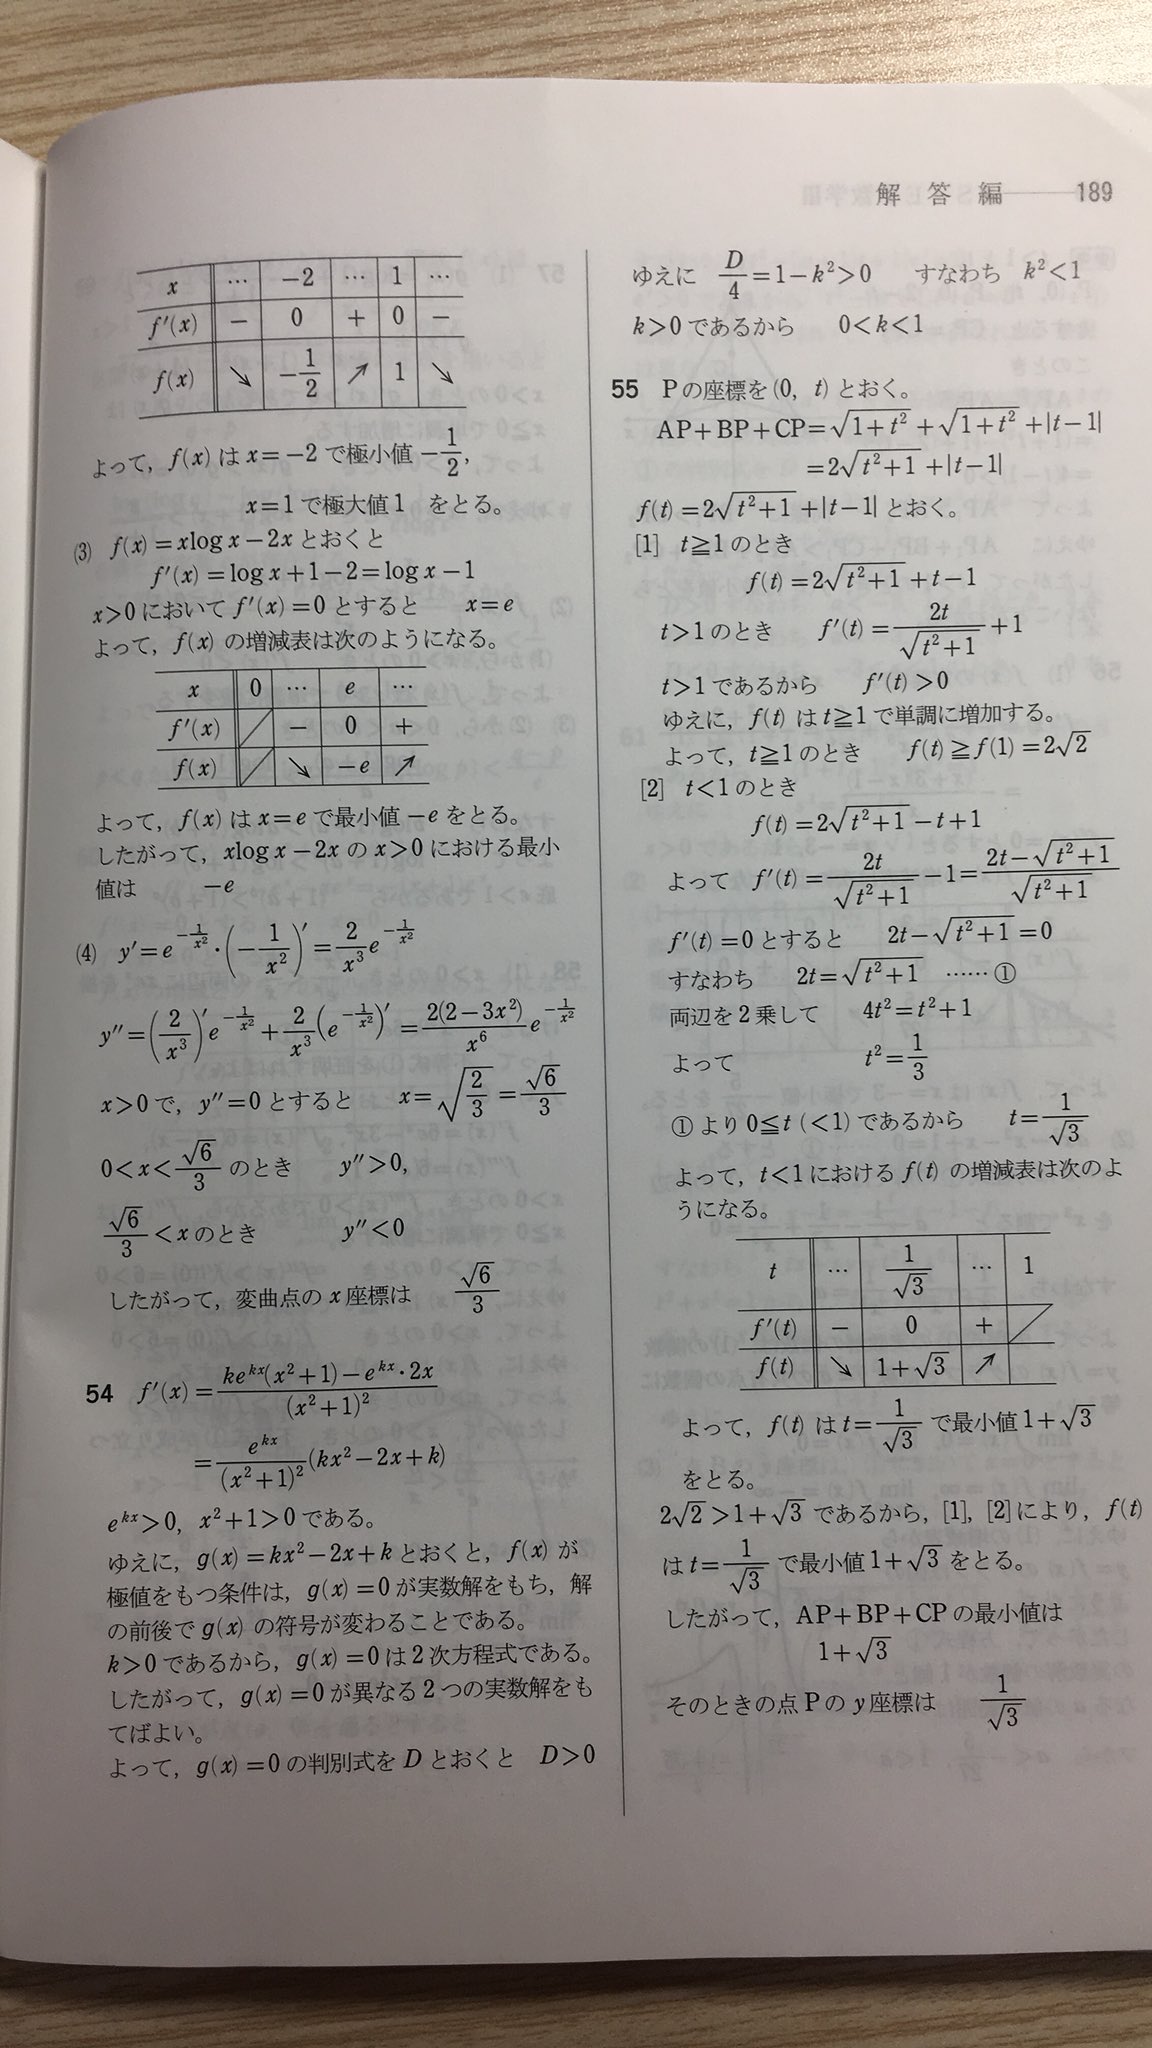 解答編 189
x … −2 … 1 …
f′(x) − 0 + 0 −
f(x) ↘ −1/2 ↗ 1 ↘
よって，f(x) は x=−2 で極小値 −1/2，
x=1 で極大値 1 をとる。
(3) f(x)=xlog x−2x とおくと
f′(x)=log x+1−2=log x−1
x>0 において f′(x)=0 とすると x=e
よって，f(x) の増減表は次のようになる。
x 0 … e …
f′(x) − 0 +
f(x) ↘ −e ↗
よって，f(x) は x=e で最小値 −e をとる。
したがって，xlog x−2x の x>0 における最小
値は −e
(4) y′=e^{−1/x²}・(−1/x²)′=2/x³ e^{−1/x²}
y″=(2/x³)′e^{−1/x²}+2/x³(e^{−1/x²})′=2(2−3x²)/x⁶ e^{−1/x²}
x>0 で，y″=0 とすると x=√(2/3)=√6/3
0<x<√6/3 のとき y″>0，
√6/3<x のとき y″<0
したがって，変曲点の x 座標は √6/3
54 f′(x)=(ke^{kx}(x²+1)−e^{kx}・2x)/(x²+1)²
=e^{kx}/(x²+1)²(kx²−2x+k)
e^{kx}>0，x²+1>0 である。
ゆえに，g(x)=kx²−2x+k とおくと，f(x) が
極値をもつ条件は，g(x)=0 が実数解をもち，解
の前後で g(x) の符号が変わることである。
k>0 であるから，g(x)=0 は 2 次方程式である。
したがって，g(x)=0 が異なる 2 つの実数解をも
てばよい。
よって，g(x)=0 の判別式を D とおくと D>0
ゆえに D/4=1−k²>0 すなわち k²<1
k>0 であるから 0<k<1
55 P の座標を (0，t) とおく。
AP+BP+CP=√(1+t²)+√(1+t²)+|t−1|
=2√(t²+1)+|t−1|
f(t)=2√(t²+1)+|t−1| とおく。
[1] t≧1 のとき
f(t)=2√(t²+1)+t−1
t>1 のとき f′(t)=2t/√(t²+1)+1
t>1 であるから f′(t)>0
ゆえに，f(t) は t≧1 で単調に増加する。
よって，t≧1 のとき f(t)≧f(1)=2√2
[2] t<1 のとき
f(t)=2√(t²+1)−t+1
よって f′(t)=2t/√(t²+1)−1=(2t−√(t²+1))/√(t²+1)
f′(t)=0 とすると 2t−√(t²+1)=0
すなわち 2t=√(t²+1) ……①
両辺を 2 乗して 4t²=t²+1
よって t²=1/3
①より 0≦t (<1) であるから t=1/√3
よって，t<1 における f(t) の増減表は次のよ
うになる。
t … 1/√3 … 1
f′(t) − 0 +
f(t) ↘ 1+√3 ↗
よって，f(t) は t=1/√3 で最小値 1+√3
をとる。
2√2>1+√3 であるから，[1]，[2] により，f(t)
は t=1/√3 で最小値 1+√3 をとる。
したがって，AP+BP+CP の最小値は
1+√3
そのときの点 P の y 座標は 1/√3